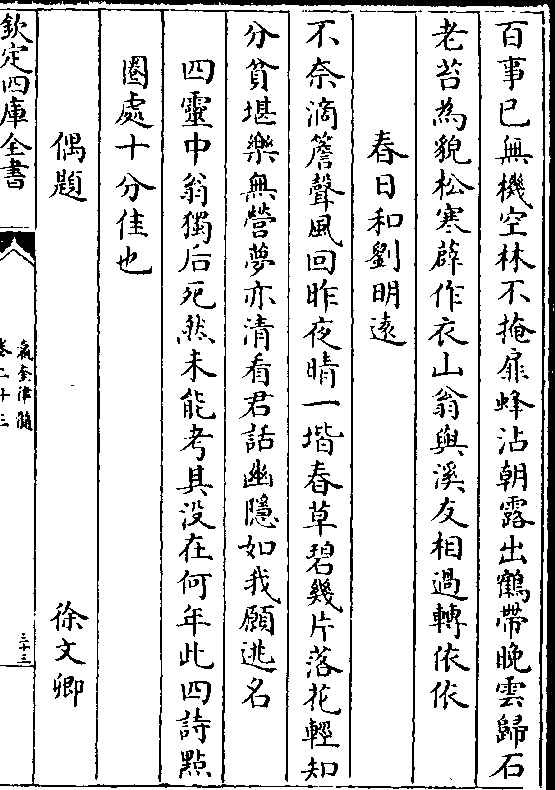 百事已無機空林不掩扉蜂沾朝露出鶴帶晚雲歸石
老苔為貌松寒薜作衣山翁與溪友相過轉依依
春日和劉明遠
不奈滴簷聲風回昨夜晴一堦春草碧幾片落花輕知
分貧堪樂無營夢亦清看君話幽隱如我願逃名
四靈中翁獨后死然未能考其没在何年此四詩點
圏處十分佳也
偶題 徐文卿
欽定四庫全書
瀛奎律髓
卷二十三
三十三